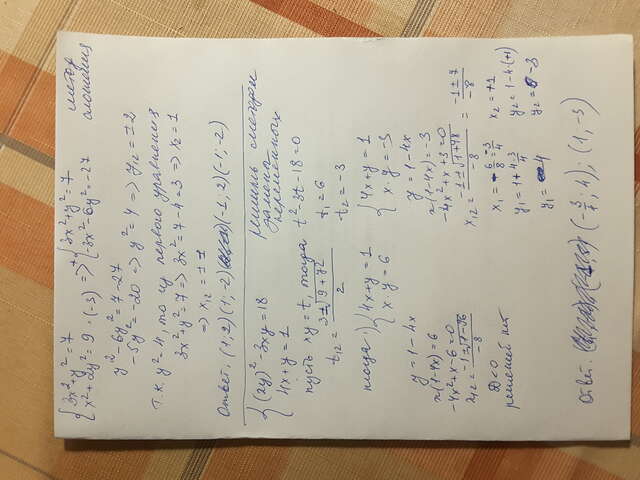 {3x²+y²=7
x²+2y²=9 ·(-3) => + {3x²+y²=7
-3x²-6y²=-27 метод сложения
y²-6y²=7-27
-5y²=-20 => y²=4 => y₁₂=±2
Т.к. y²=4, то из первого уравнения
3x²+y²=7 => 3x²=7-4=3 => x²=1
=> x₁₂=±1
Ответ. (1;2) (1;-2) (-1;2) (-1;-2)
{(xy)²-3xy=18
4x+y=1
решить методом
замены
переменных
пусть xy=t, тогда t²-3t-18=0
t₁₂=(3±√(9+72))/2
t₁=6
t₂=-3
тогда 1) {4x+y=1
x·y=6
y=1-4x
x(1-4x)=6
-4x²+x-6=0
x₁₂=(-1±√(1-96))/-8
D<0
решений нет
{4x+y=1
x·y=-3
y=1-4x
x(1-4x)=-3
-4x²+x+3=0
x₁₂=(-1±√(1+48))/-8 = (-1±7)/-8
x₁=-6/8=-3/4 x₂=+1
y₁=1+4·3/4 y₂=1-4·(+1)
y₁=4 y₂=-3
Ответ. (-3/4; 4); (1,-3)